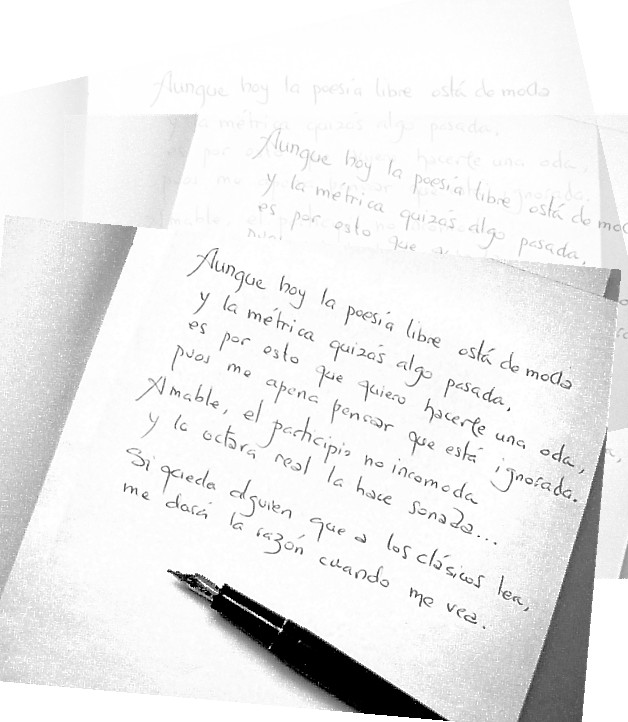 Aunque hoy la poesía libre está de moda
y la métrica quizás algo pasada,
Aunque hoy la poesía libre está de mod
y la métrica quizás algo pasada,
es por esto que
Aunque hoy la poesía libre está de moda
y la métrica quizás algo pasada,
es por esto que quiero hacerte una oda,
pues me apena pensar que está ignorada.
Amable, el participio no incomoda
y la octava real la hace sonada...
Si queda alguien que a los clásicos lea,
me dará la razón cuando me vea.